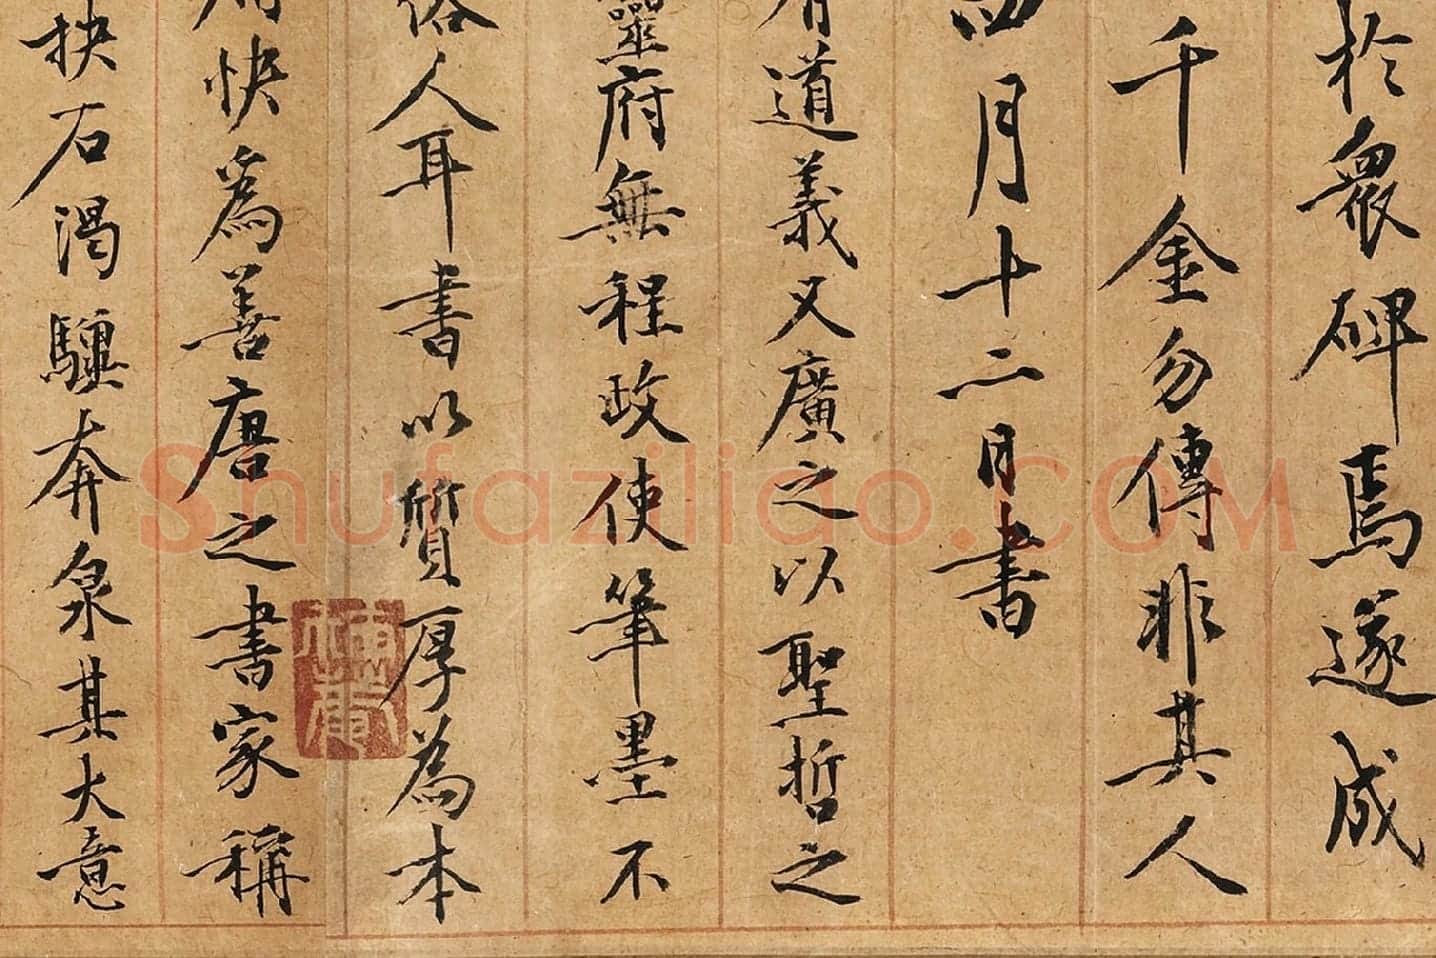 於眾碑焉遂成
千金勿傳非其人
四月十二日書
有道義又廣之以聖哲之
靈府無程政使筆墨不
俗人耳書以質厚為本
快為善唐之書家稱
抉石渴驥奔泉其大意
Shufaziliao.COM